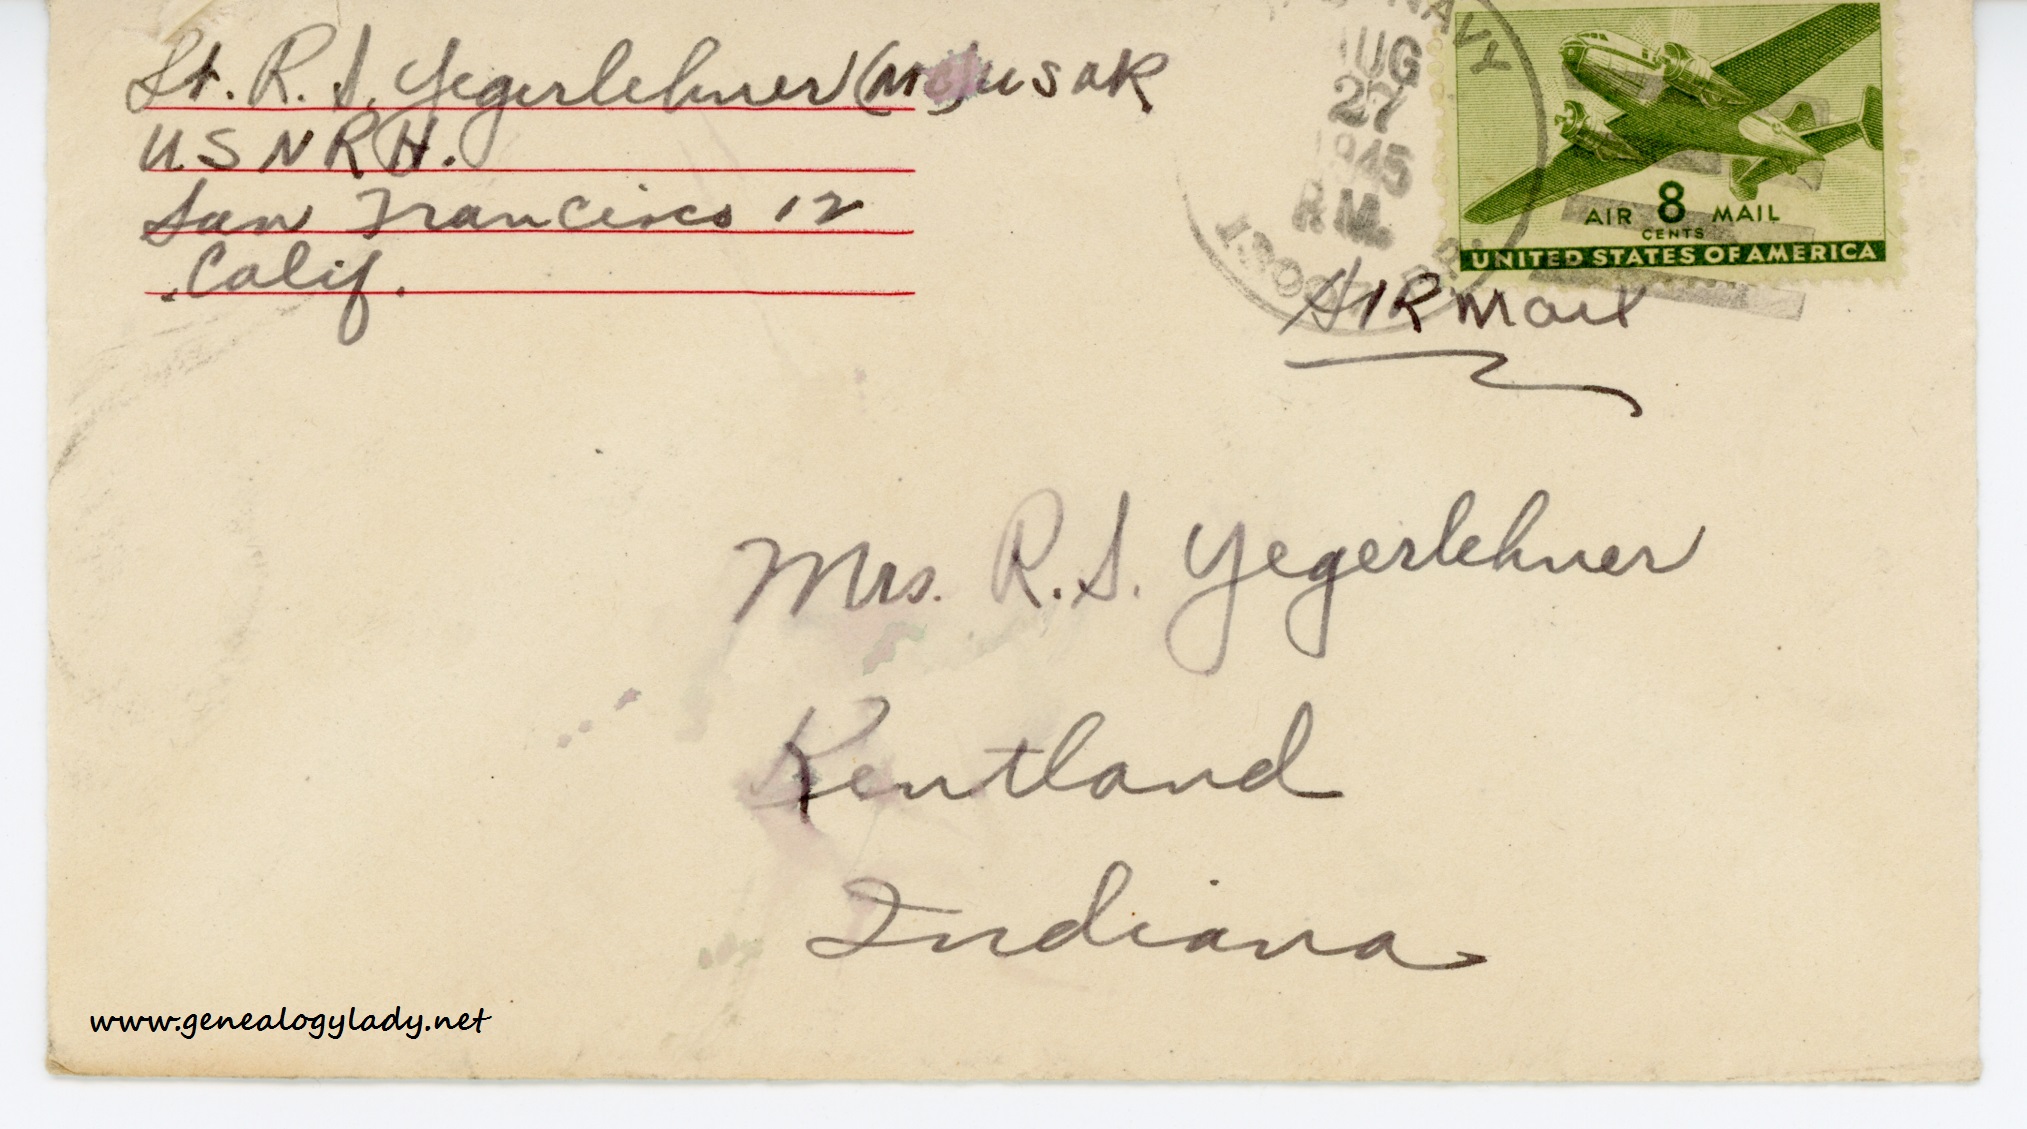 Lt. R. S. Yegerlehner (MC) USNR
U.S N R H.
San Francisco 12
Calif.
NAVY
AUG
27
1945
P.M.
13007 BR.
AIR 8 MAIL
CENTS
UNITED STATES OF AMERICA
AIRMail
Mrs. R. S. Yegerlehner
Kentland
Indiana
www.genealogylady.net